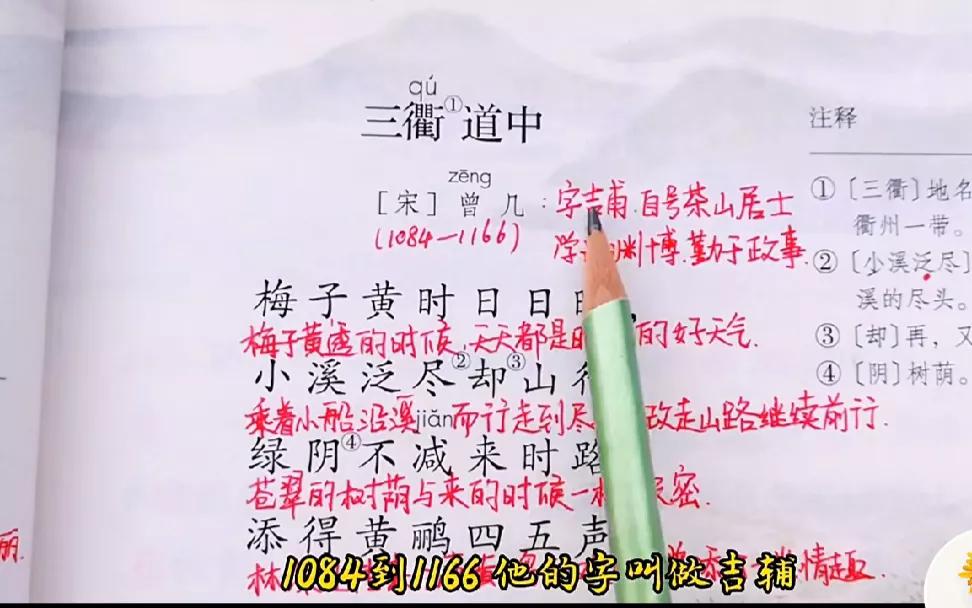 qú
三衢①道中
zēng
[宋] 曾 几：字吉甫.自号茶山居士
(1084—1166) 学 渊博.勤于政事.
梅子黄时日日
梅子黄透的时候,天天都是 的好天气.
小溪泛尽②却③山
乘着小船沿溪而行走到尽 改走山路继续前行.
jiǎn
绿阴④不减来时路
苍翠的树荫与来的时候一 密.
添得黄鹂四五声
林 情趣.
注释
①〔三衢〕地名
衢州一带。
②〔小溪泛尽〕
溪的尽头。
③〔却〕再，又
④〔阴〕树荫。
丽.
1084到1166 他的字叫做吉辅